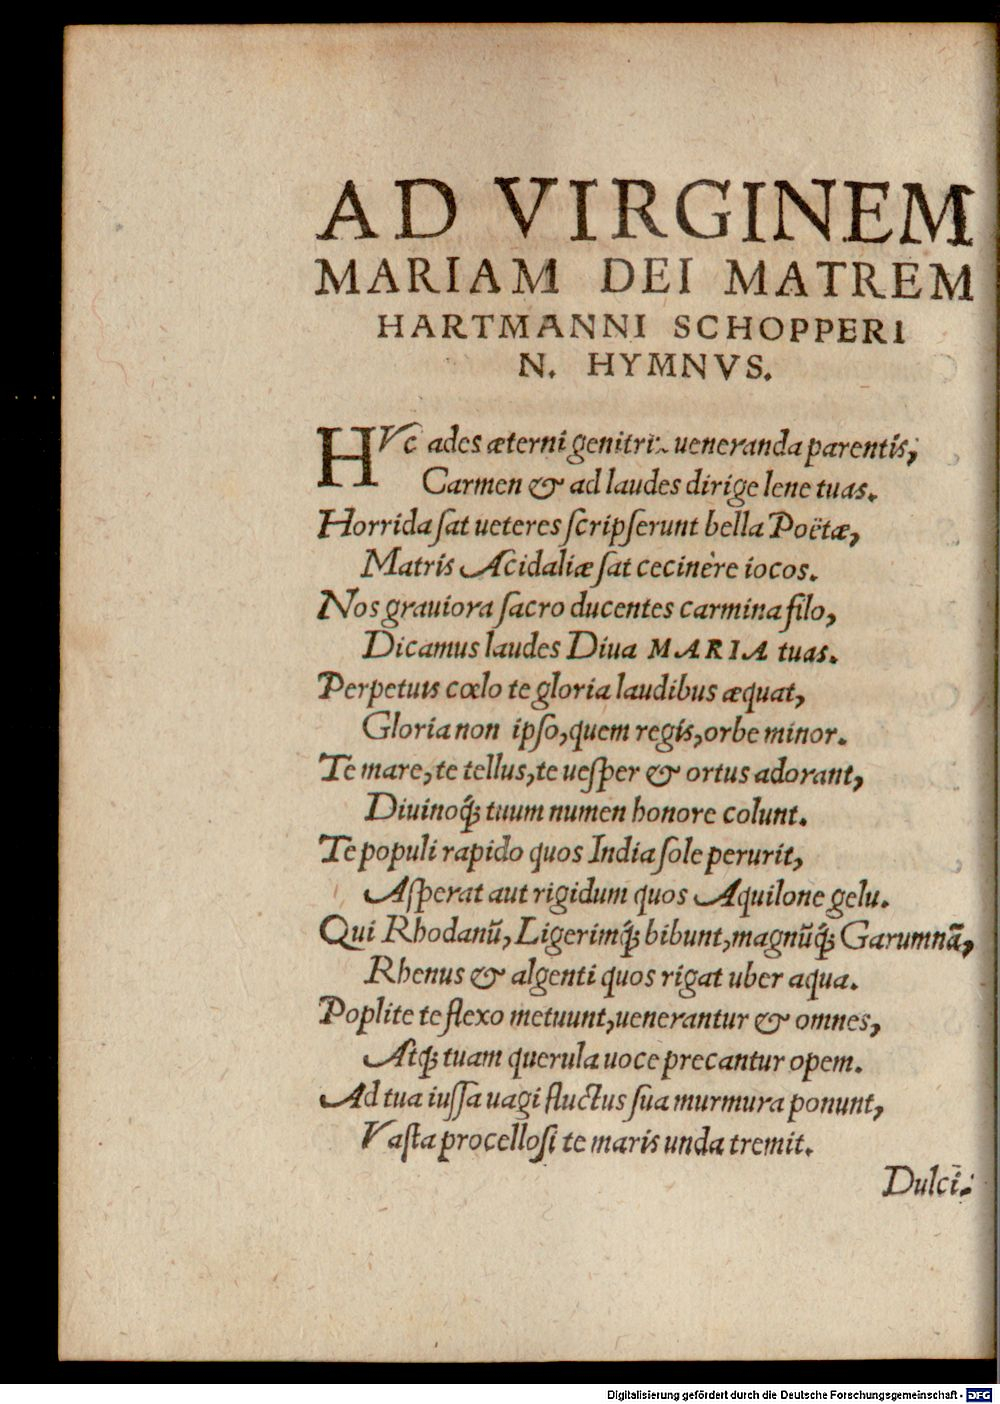 AD VIRGINEM
MARIAM DEI MATREM
HARTMANNI SCHOPPERI
N. HYMNVS.
HVc ades æterni genitrix ueneranda parentis,
Carmen & ad laudes dirige lene tuas.
Horrida ſat ueteres ſcripſerunt bella Poëtæ,
Matris Acidaliæ ſat cecinère iocos.
Nos grauiora ſacro ducentes carmina filo,
Dicamus laudes Diua MARIA tuas.
Perpetuis cœlo te gloria laudibus æquat,
Gloria non ipſo, quem regis, orbe minor.
Te mare, te tellus, te ueſper & ortus adorant,
Diuinoq́; tuum numen honore colunt.
Te populi rapido quos India ſole perurit,
Aſperat aut rigidum quos Aquilone gelu.
Qui Rhodanū, Ligerimq́; bibunt, magnūq́; Garumnā,
Rhenus & algenti quos rigat uber aqua.
Poplite te flexo metuunt, uenerantur & omnes,
Atq́; tuam querula uoce precantur opem.
Ad tua iuſſa uagi fluctus ſua murmura ponunt,
Vaſta procelloſi te maris unda tremit.
Dulci:
Digitalisierung gefördert durch die Deutsche Forschungsgemeinschaft - DFG